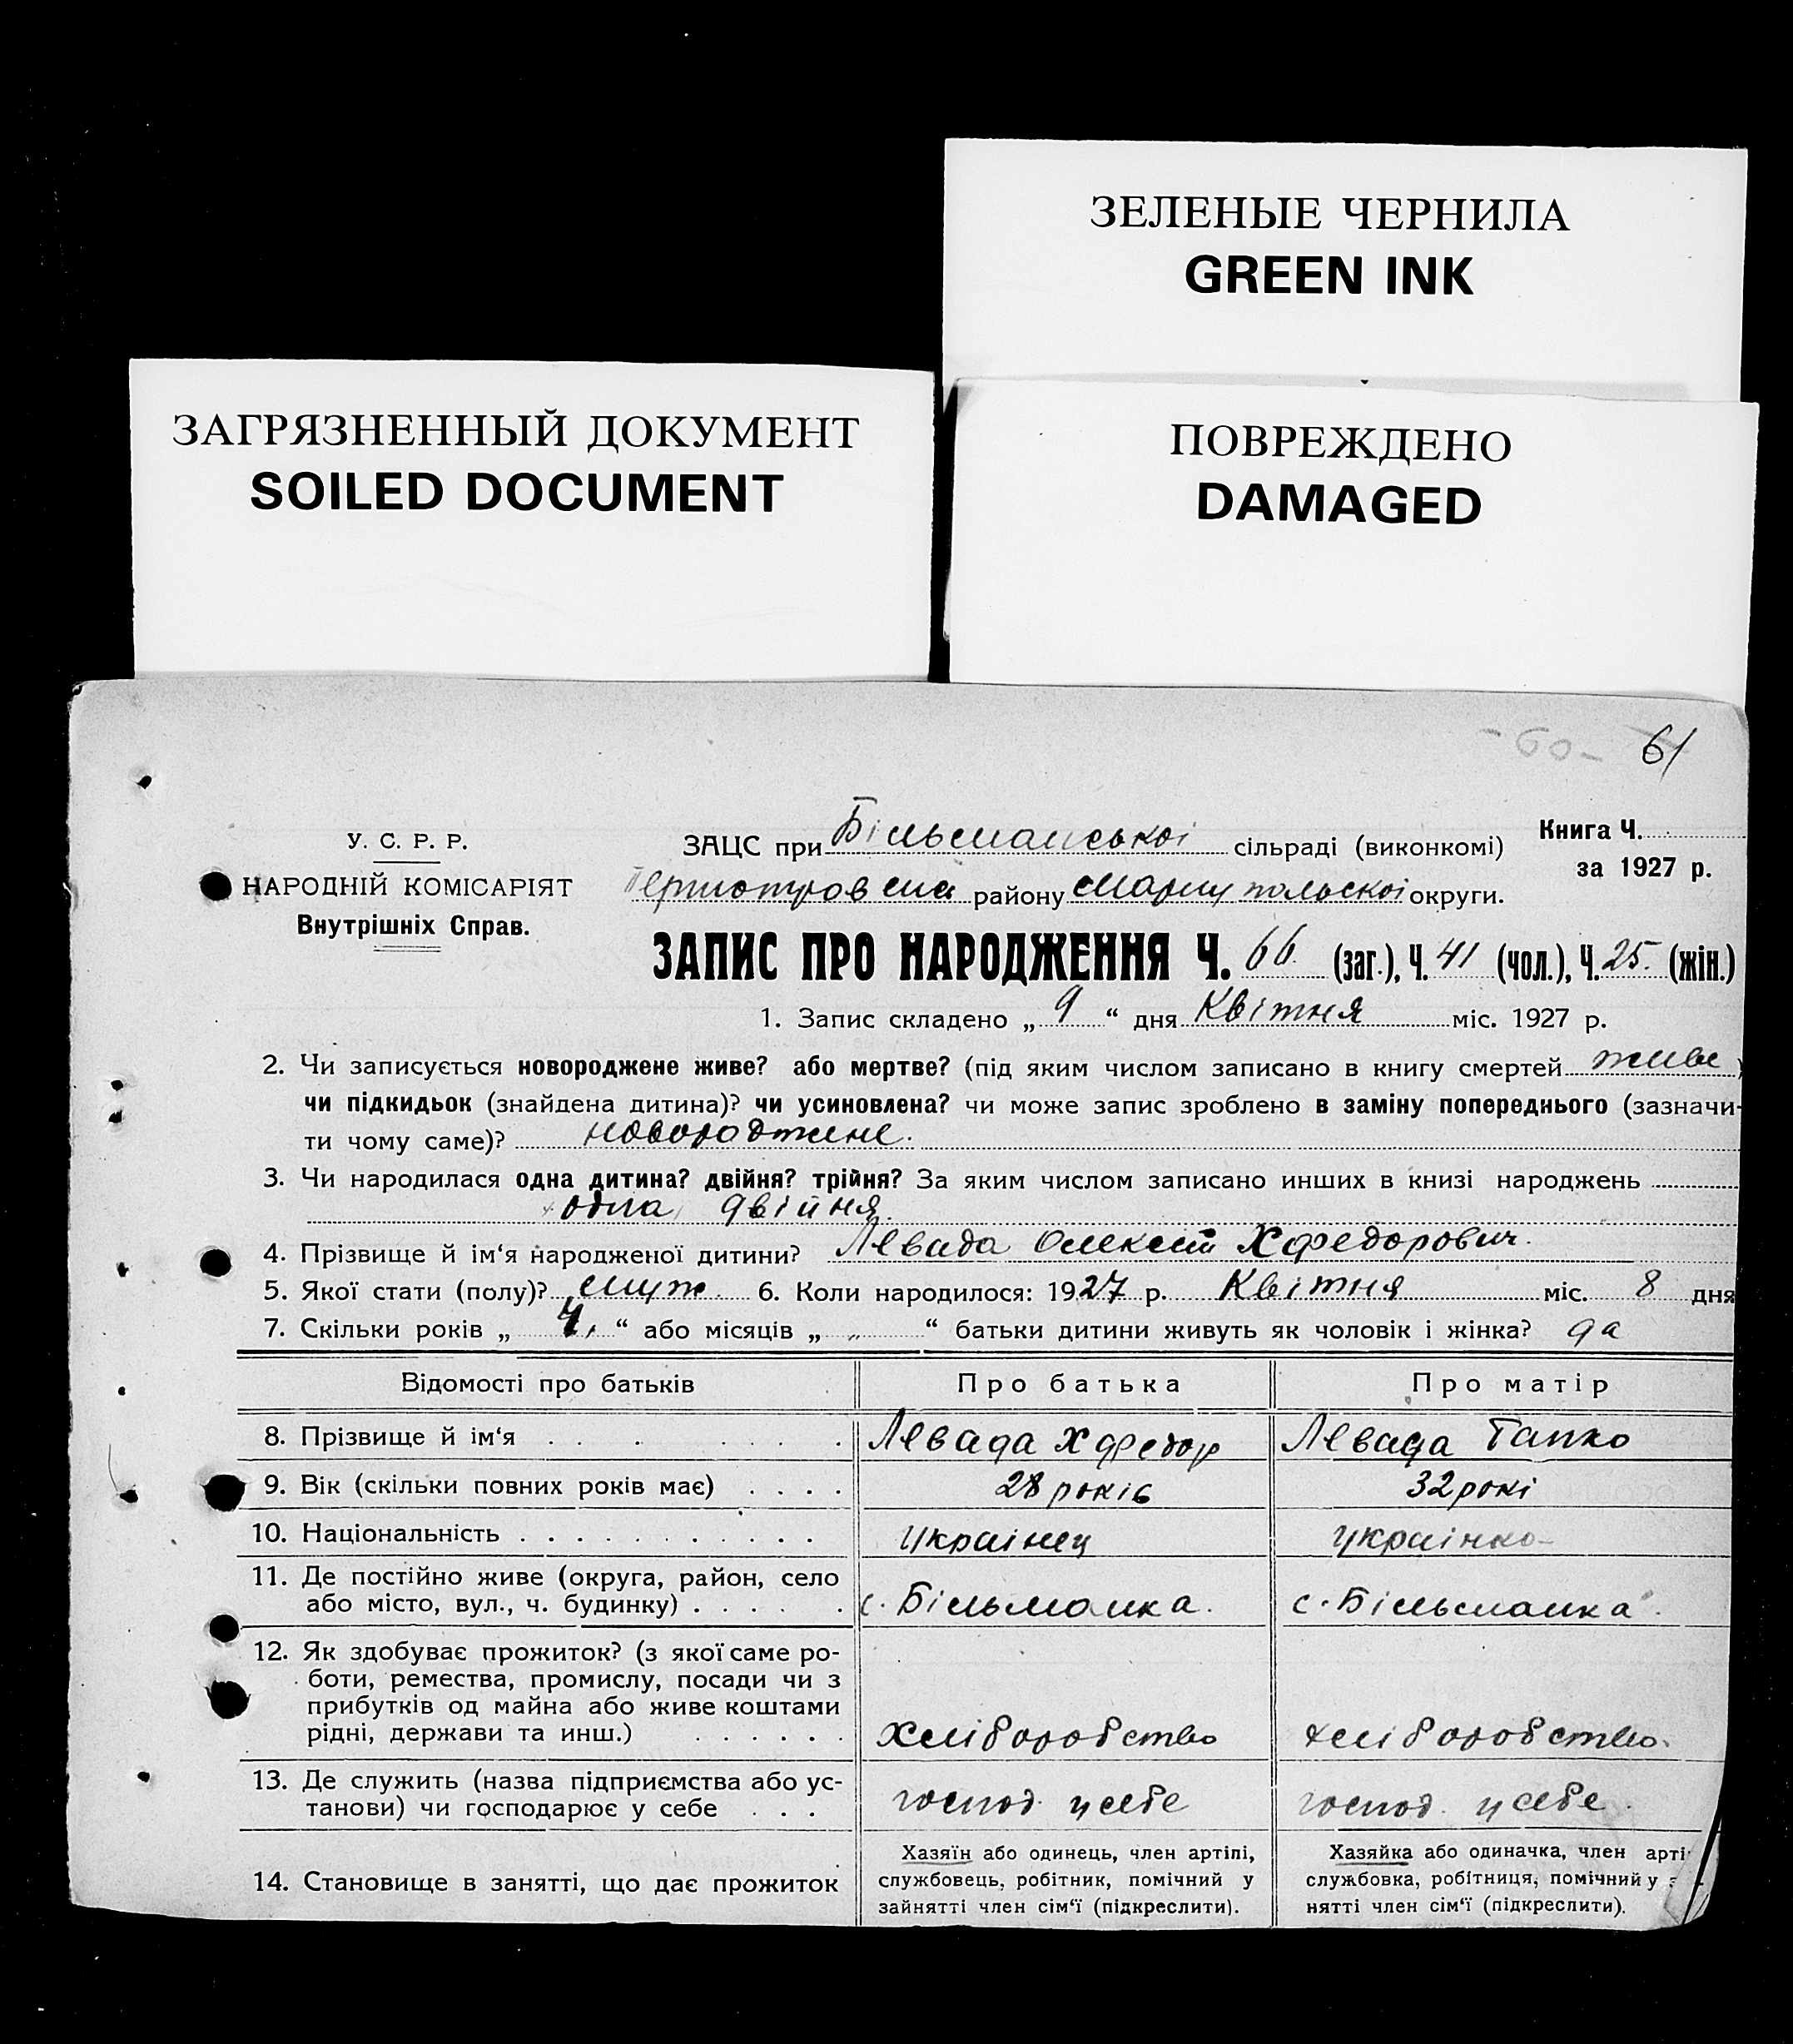 ЗЕЛЕНЫЕ ЧЕРНИЛА
GREEN INK
ЗАГРЯЗНЕННЫЙ ДОКУМЕНТ
SOILED DOCUMENT
ПОВРЕЖДЕНО
DAMAGED
-60- 61
У. С. Р. Р.
НАРОДНІЙ КОМІСАРІЯТ
Внутрішніх Справ.
ЗАЦС при Більманської сільраді (виконкомі)
району Маріупольскої округи.
Книга Ч.
за 1927 р.
ЗАПИС ПРО НАРОДЖЕННЯ Ч. 66 (заг.), Ч. 41 (чол.), Ч. 25. (жін.)
1. Запис складено „ 9 “ дня Квітня міс. 1927 р.
2. Чи записується новороджене живе? або мертве? (під яким числом записано в книгу смертей живе )
чи підкидьок (знайдена дитина)? чи усиновлена? чи може запис зроблено в заміну попереднього (зазначи-
ти чому саме)? новороджене.
3. Чи народилася одна дитина? двійня? трійня? За яким числом записано инших в книзі народжень
одна, двійня.
4. Прізвище й ім‘я народженої дитини? Левада Олексій Хфедорович.
5. Якої стати (полу)? муж. 6. Коли народилося: 1927 р. Квітня міс. 8 дня
7. Скільки років „ 4, “ або місяців „ „ “ батьки дитини живуть як чоловік і жінка? да
Відомості про батьків Про батька Про матір
8. Прізвище й ім‘я . . . . . . . . Левада Хфедор Левада Гапко
9. Вік (скільки повних років має) . . . . 28 років 32 рокі
10. Національність . . . . . . . . . . . Украінец украінко
11. Де постійно живе (округа, район, село
або місто, вул., ч. будинку) . . . . . . с. Більманка. с. Більманка.
12. Як здобуває прожиток? (з якої саме ро-
боти, ремества, промислу, посади чи з
прибутків од майна або живе коштами
рідні, держави та инш.) . . . . . . Хліборобство хліборобство.
13. Де служить (назва підприємства або ус-
танови) чи господарює у себе . . . господ. у себе господ. у себе.
14. Становище в занятті, що дає прожиток
Хазяїн або одинець, член артілі,
службовець, робітник, помічний у
зайнятті член сім‘ї (підкреслити).
Хазяйка або одиначка, член арті
службовка, робітниця, помічний у з
нятті член сім‘ї (підкреслити).